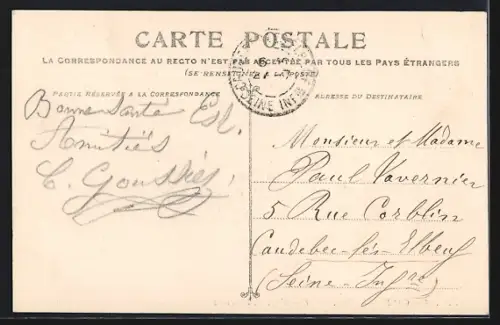 CARTE POSTALE
LA CORRESPONDANCE AU RECTO N'EST PAS ACCEPTÉE PAR TOUS LES PAYS ÉTRANGERS
(SE RENSEIGNER À LA POSTE)
PARTIE RÉSERVÉE A LA CORRESPONDANCE
ADRESSE DU DESTINATAIRE
SEINE INFRE
Bonne Santé
Amitiés
C.
Monsieur et Madame
Paul Vavernier
5 Rue Corblin
Caudebec-lés-Elbeuf
(Seine-Infre)